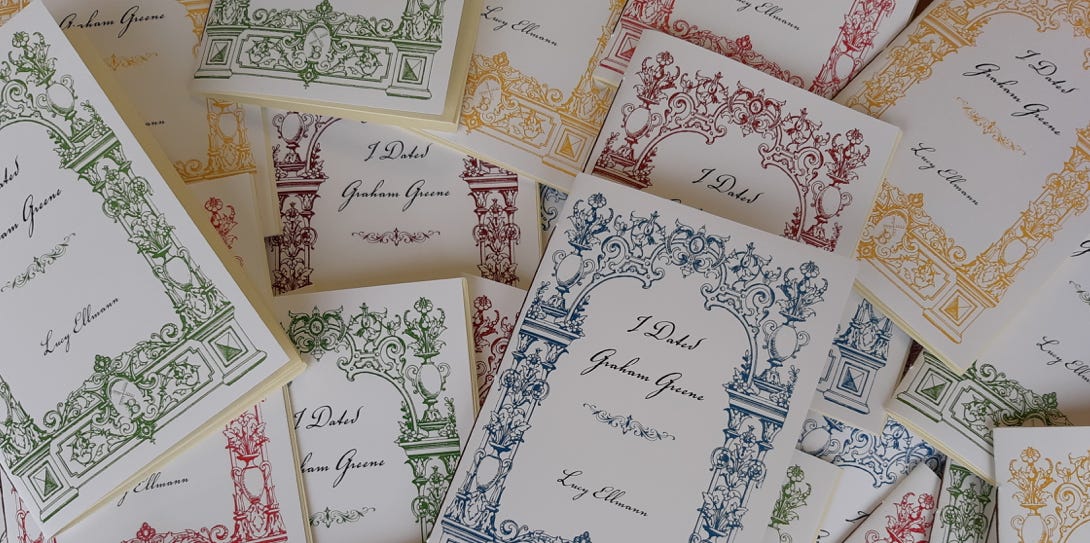 Graham Greene
Lucy Ellmann
Lucy Ellmann
I Dated
Graham Greene
Lucy Ellmann
I Dated
Graham Greene
I Dated
Graham Greene
Lucy Ellmann
Lucy Ellmann
I Dated
Graham Greene
Lucy Ellmann
I Dated
Graham Greene
Lucy Ellmann